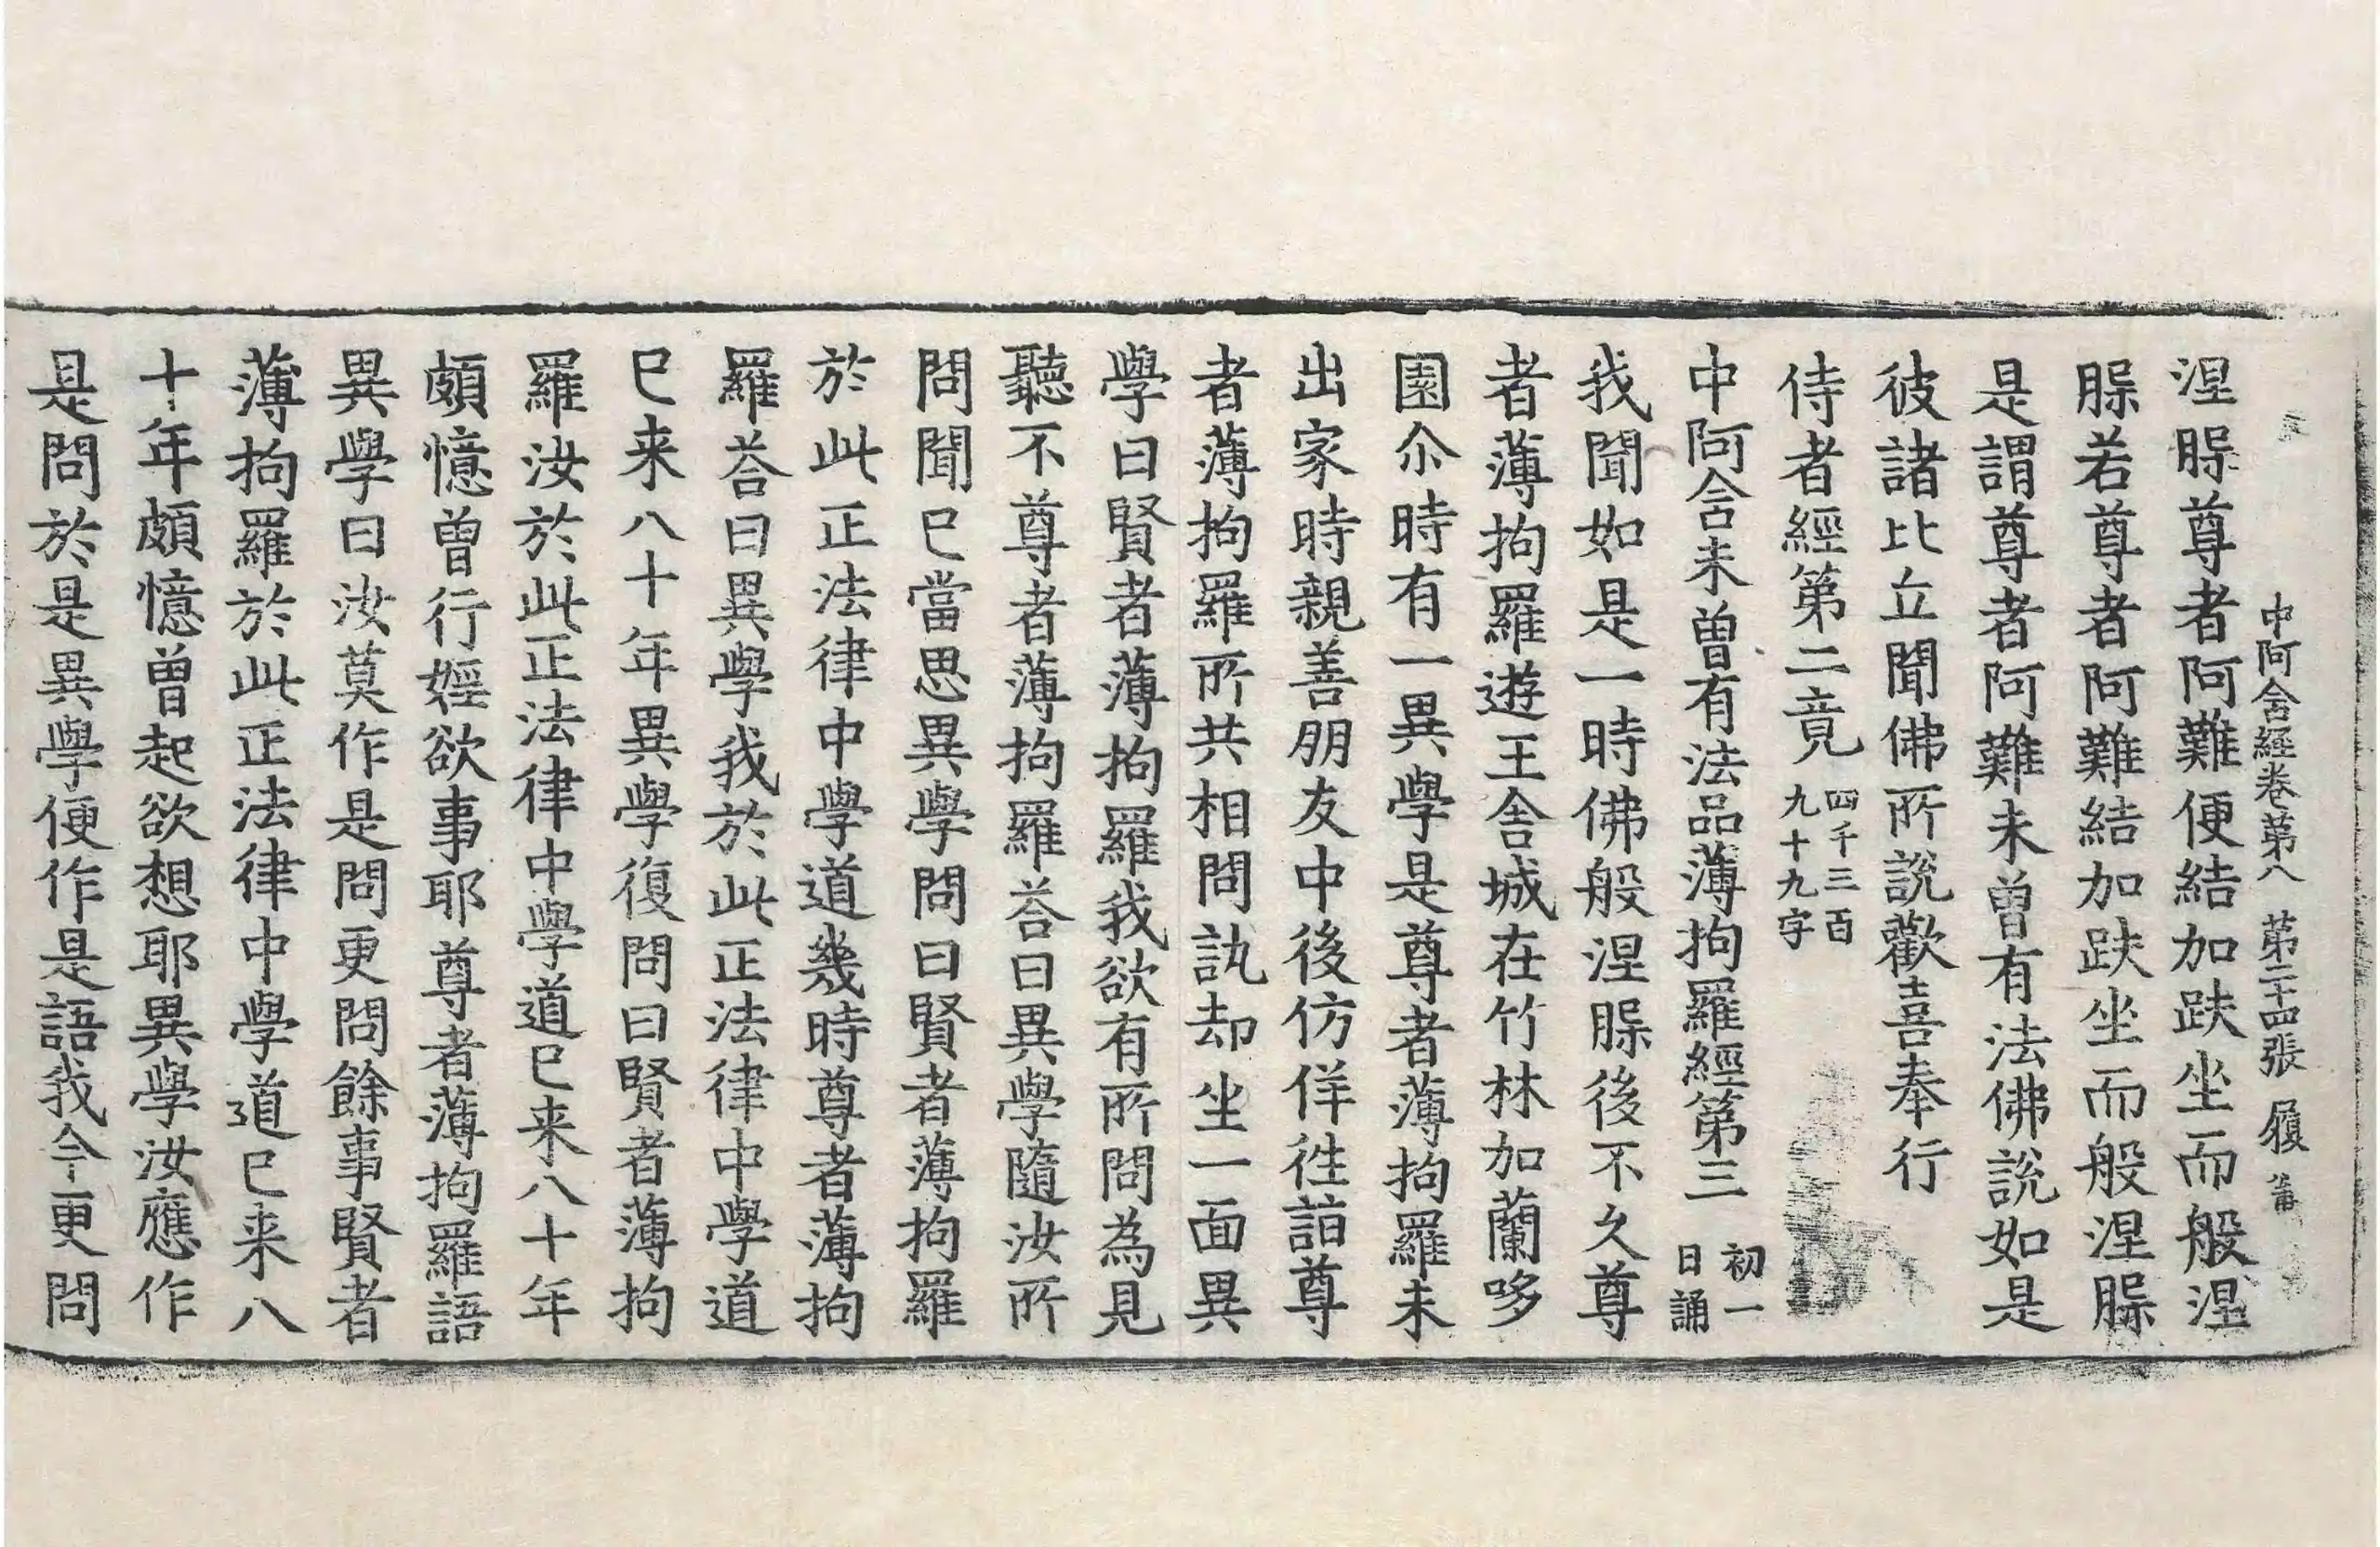 中阿含經卷第八 第二十四張 履
涅䏶尊者阿難便結加趺坐而般涅
䏶若尊者阿難結加趺坐而般涅䏶
是謂尊者阿難未曾有法佛說如是
彼諸比丘聞佛所說歡喜奉行
侍者經第二竟 四千三百九十九字
中阿含未曾有法品薄拘羅經第三 初一日誦
我聞如是一時佛般涅䏶後不久尊
者薄拘羅遊王舍城在竹林加蘭哆
園尒時有一異學是尊者薄拘羅未
出家時親善朋友中後仿佯徃詣尊
者薄拘羅所共相問訊却坐一面異
學曰賢者薄拘羅我欲有所問為見
聽不尊者薄拘羅荅曰異學隨汝所
問聞已當思異學問曰賢者薄拘羅
於此正法律中學道幾時尊者薄拘
羅荅曰異學我於此正法律中學道
已来八十年異學復問曰賢者薄拘
羅汝於此正法律中學道已来八十年
頗憶曾行婬欲事耶尊者薄拘羅語
異學曰汝莫作是問更問餘事賢者
薄拘羅於此正法律中學道已来八
十年頗憶曾起欲想耶異學汝應作
是問於是異學便作是語我今更問